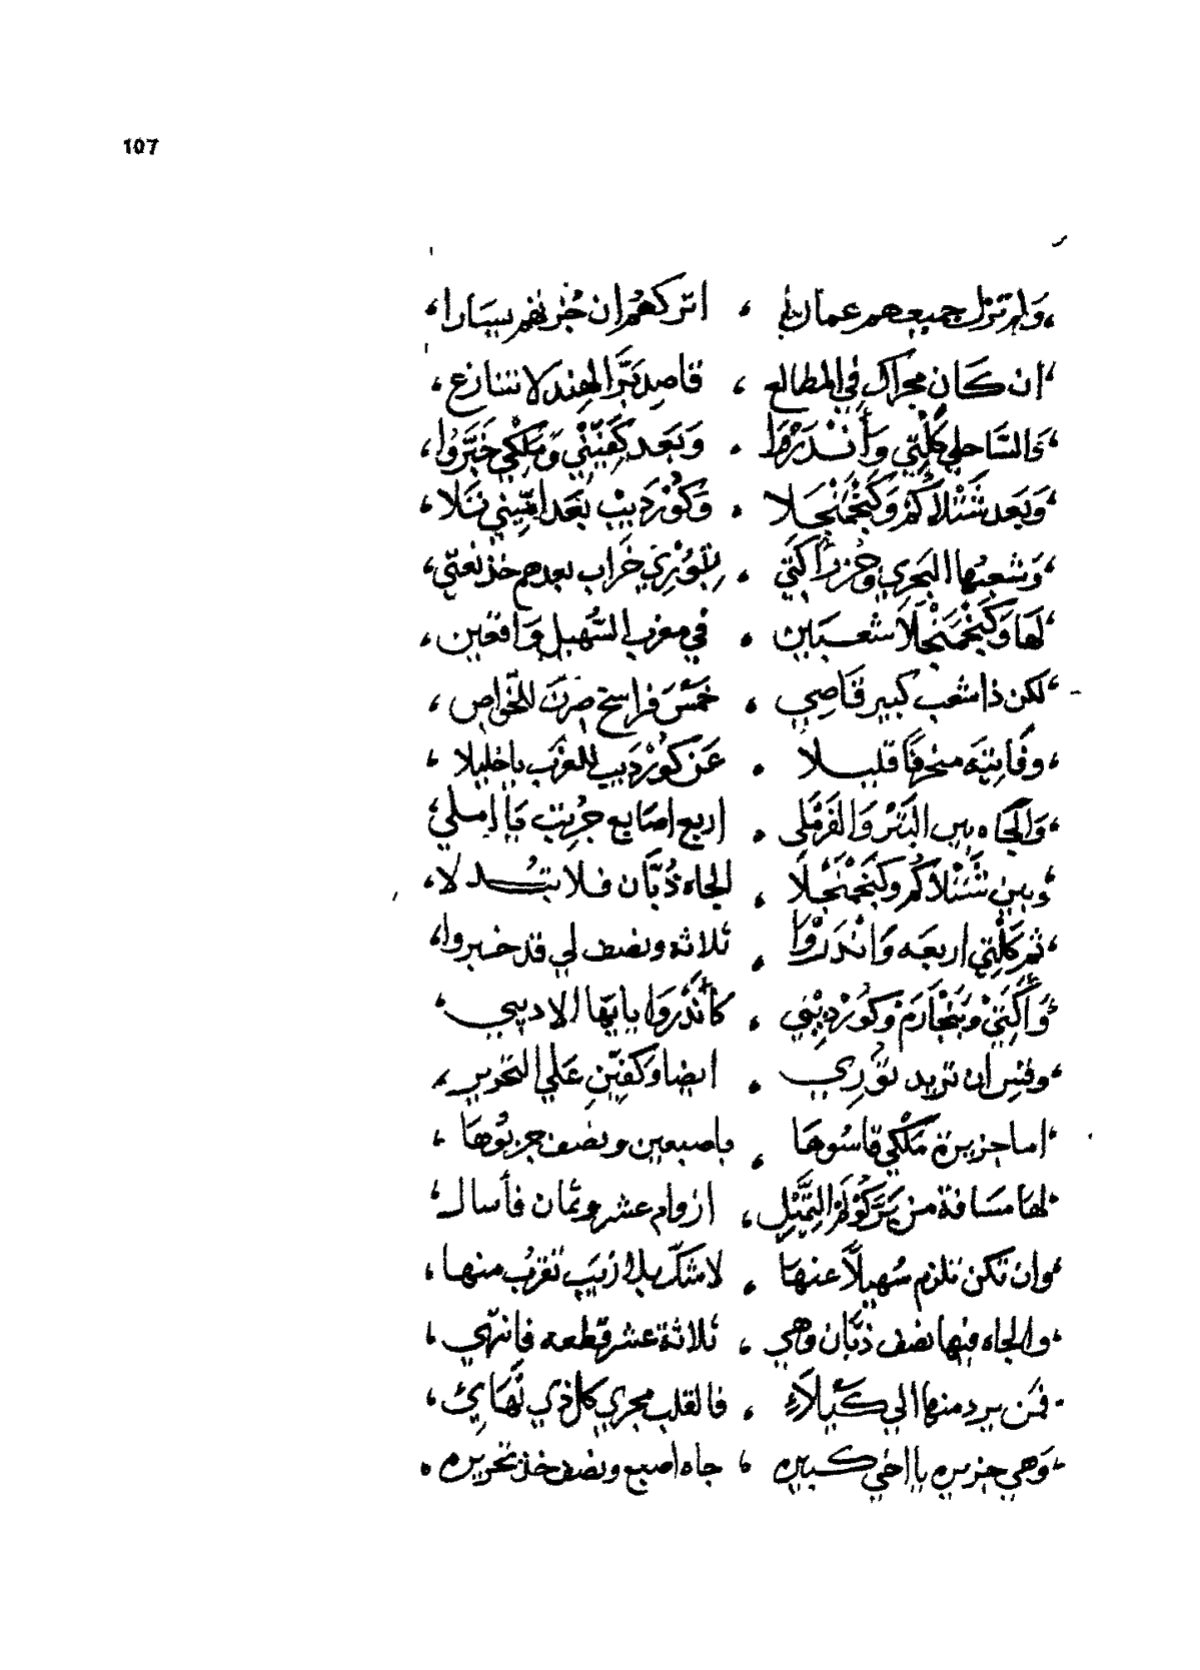 107
وَلم تزل جميعهم عمان ، اتركهم ان جُزتهم يسارا
ان كان مجراك في المطالع ، قاصد بَرّ الهند لا تنازع
فالسَّاحلي كَلْتِي وَأَنْدَرْوَا ، وَبَعد كَفِيْنِي وَمَلكي خَبَّرُوا
وَبَعد شَتْلاكُم وَكَنْجَمَنْجَلا ، وَكُوْرْدِيْب بَعد امِّيني تلا
وَشعبُها البَحري وَجُزر أَكَتِّي ، بِتُوْرِي خَراب بعدهم خذ نعتي
لَهَا وَكَنْجَمَنْجَلَا شعبَاين ، في مغرب السُّهَيل وَاقعَين
لكن ذا شعب كبير قَاصِي ، خَمْسَ فراسخ صَرْن للخَواص
وفَانِيَه منحرفًا قليلا ، عَن كُوْرْدِيب للمغرب يا خليلا
وَالجَاه بين البَتْر وَالفَرْمَلي ، اربع اصَابع جُرِّبت يَا املي
وبين شَتْلاكُم وكَنْجَمَنْجَلَا ، الجاه ذُبَّان فلا تبُدلا
ثم كَلْتي اربعَه وَانْدَرْوَا ، ثلاثه ونصف لي قد خبروا
وَأَكَتِّيْ وَبَنْجَارَمْ وَكُوْرْدِيْبي ، كَأَنْدَرْوَا يا ايّها الاديبي
وقِس ان تريد تُوْرِي ، ايضا وكَفِيْنِي عَلي التحرير
اما جزيرة مَلْكِي قاسُوهَا ، باصبعين ونصف جربُوهَا
لهَا مسَافة من بَرّ كُوْلَم التِّيْل ، ازوام عشر وثمان فأسال
وان تكن تلزم سُهيلًا عنهَا ، لا شكّ بل ازيَب تقرُب منها
والجاه فيها نصف ذبّان وهي ، ثلاثة عشر قطعه فانتهي
فمن يرد منها الي كَيَلَاء ، فالقلب مجري كل ذي نُهَائي
وَهي جزيره يا اخي كبيره ، جاه اصبع ونصف خذ تحريره